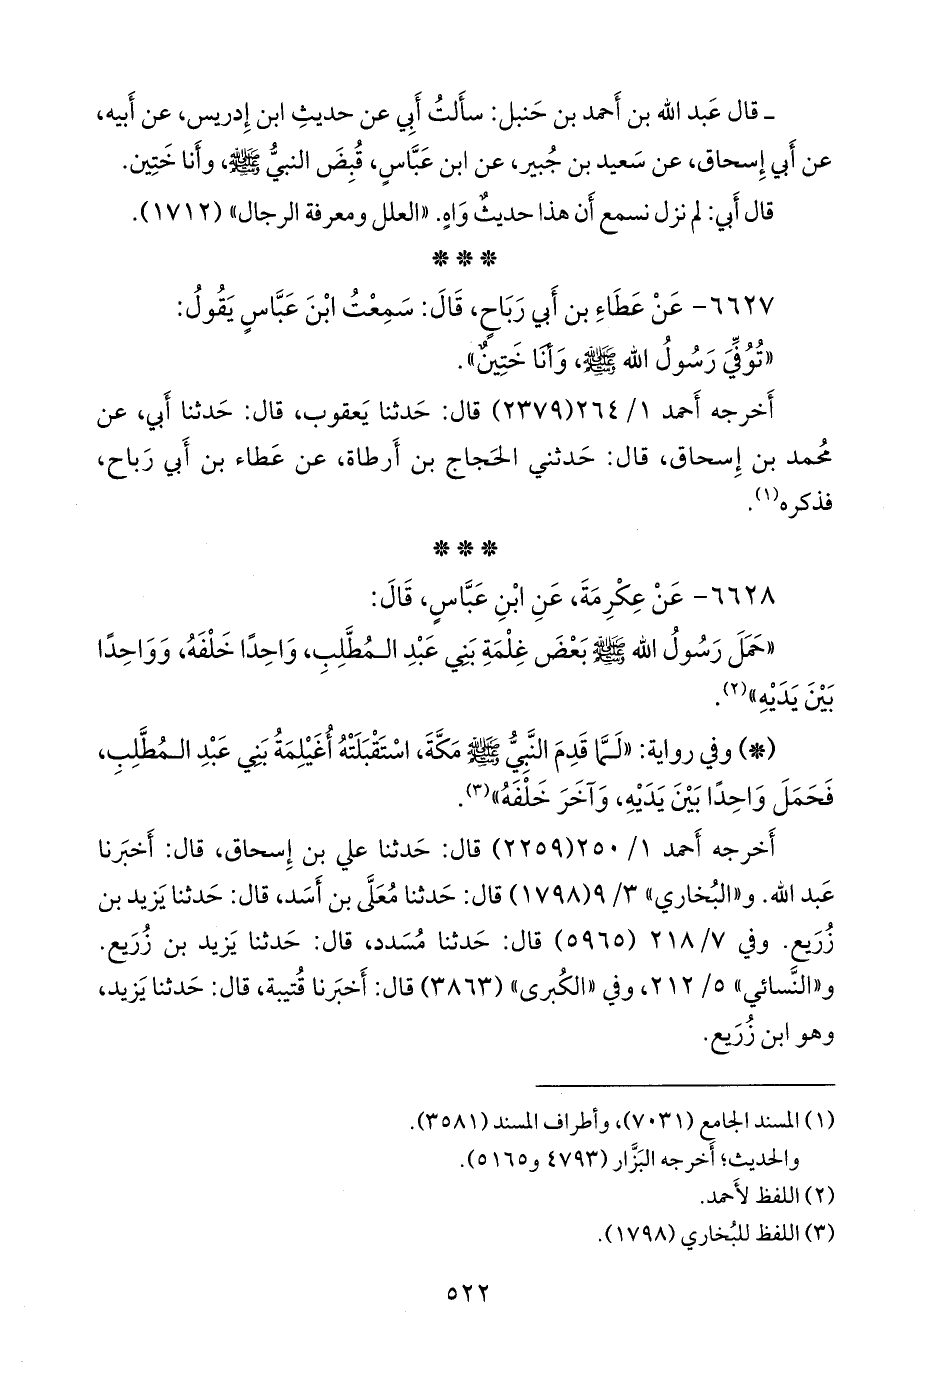 ـ قال عَبد الله بن أَحمد بن حَنبل: سأَلتُ أَبي عن حديثِ ابن إِدريس، عن أَبيه،
عن أَبي إِسحاق، عن سَعيد بن جُبير، عن ابن عَبَّاسٍ، قُبِضَ النبيُّ ﷺ، وأَنا خَتِين.
قال أَبي: لم نزل نسمع أَن هذا حديثٌ وَاهٍ. «العلل ومعرفة الرجال» (١٧١٢).
* * *
٦٦٢٧- عَنْ عَطَاءِ بن أَبي رَبَاحٍ، قَالَ: سَمِعْتُ ابْنَ عَبَّاسٍ يَقُولُ:
«تُوُفِّيَ رَسُولُ الله ﷺ، وَأَنَا خَتِينٌ».
أَخرجه أَحمد ١/ ٢٦٤(٢٣٧٩) قال: حَدثنا يَعقوب، قال: حَدثنا أَبي، عن
مُحمد بن إِسحاق، قال: حَدثني الحَجاج بن أَرطاة، عن عَطاء بن أَبي رَباح،
فذكره(١).
* * *
٦٦٢٨- عَنْ عِكْرِمَةَ، عَنِ ابْنِ عَبَّاسٍ، قَالَ:
«حَمَلَ رَسُولُ الله ﷺ بَعْضَ غِلْمَةِ بَنِي عَبْدِ الـمُطَّلِبِ، وَاحِدًا خَلْفَهُ، وَوَاحِدًا
بَيْنَ يَدَيْهِ»(٢).
(*) وفي رواية: «لَـمَّا قَدِمَ النَّبِيُّ ﷺ مَكَّةَ، اسْتَقْبَلَتْهُ أُغَيْلِمَةُ بَنِي عَبْدِ الـمُطَّلِبِ،
فَحَمَلَ وَاحِدًا بَيْنَ يَدَيْهِ، وَآخَرَ خَلْفَهُ»(٣).
أَخرجه أَحمد ١/ ٢٥٠(٢٢٥٩) قال: حَدثنا علي بن إِسحاق، قال: أَخبَرنا
عَبد الله. و«البُخاري» ٣/ ٩(١٧٩٨) قال: حَدثنا مُعَلَّى بن أَسَد، قال: حَدثنا يَزيد بن
زُرَيع. وفي ٧/ ٢١٨ (٥٩٦٥) قال: حَدثنا مُسَدد، قال: حَدثنا يَزيد بن زُرَيع.
و«النَّسائي» ٥/ ٢١٢، وفي «الكُبرى» (٣٨٦٣) قال: أَخبَرنا قُتيبة، قال: حَدثنا يَزيد،
وهو ابن زُرَيع.
(١) المسند الجامع (٧٠٣١)، وأطراف المسند (٣٥٨١).
والحديث؛ أَخرجه البَزَّار (٤٧٩٣ و٥١٦٥).
(٢) اللفظ لأَحمد.
(٣) اللفظ للبُخاري (١٧٩٨).
٥٢٢